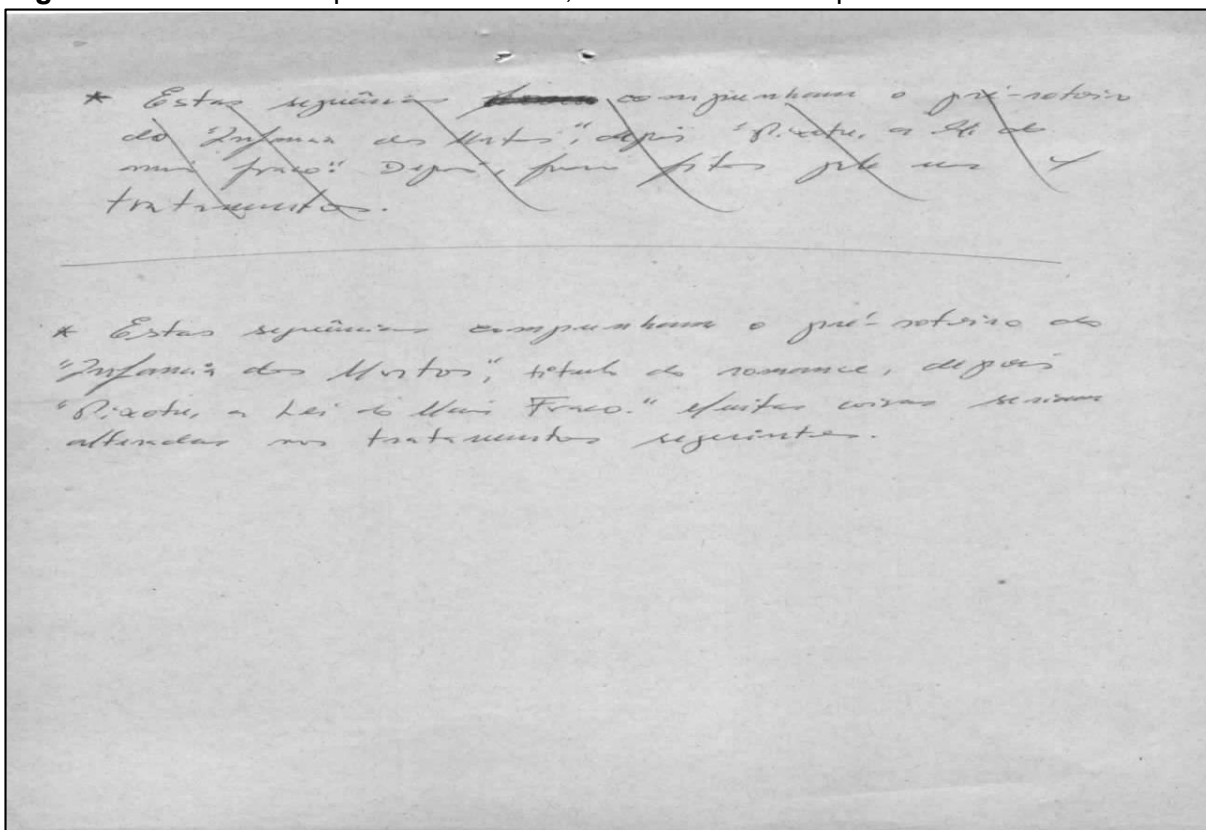 * Estas sequências compunham o pré-roteiro
do "Infancia dos Mortos", depois "Pixote, a lei do
mais fraco." Depois, foram feitos pelo menos 4
tratamentos.
* Estas sequências compunham o pré-roteiro do
"Infancia dos Mortos", título do romance, depois
"Pixote, a Lei do Mais Fraco." Muitas coisas seriam
alteradas nos tratamentos seguintes.